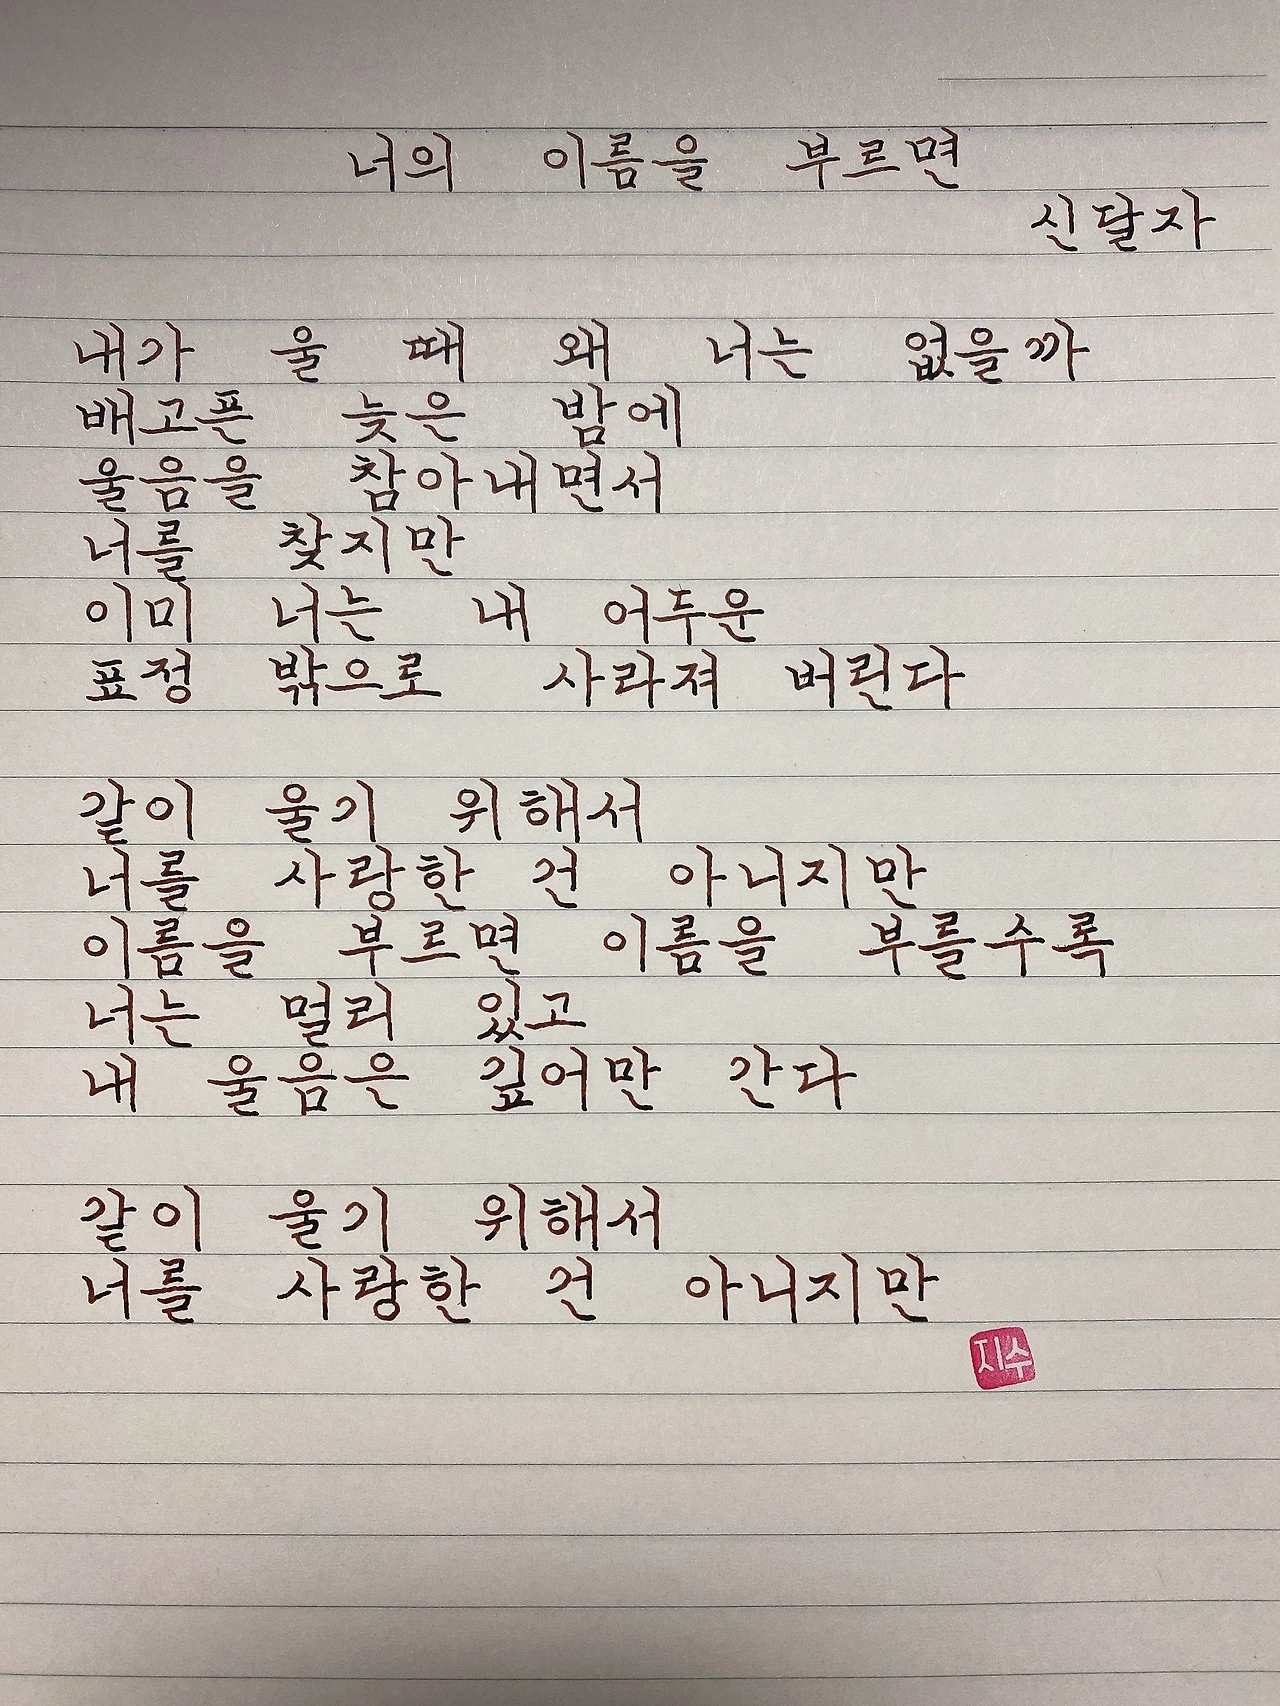 너의 이름을 부르면
신달자
내가 울 때 왜 너는 없을까
배고픈 늦은 밤에
울음을 참아내면서
너를 찾지만
이미 너는 내 어두운
표정 밖으로 사라져 버린다
같이 울기 위해서
너를 사랑한 건 아니지만
이름을 부르면 이름을 부를수록
너는 멀리 있고
내 울음은 깊어만 간다
같이 울기 위해서
너를 사랑한 건 아니지만
지수